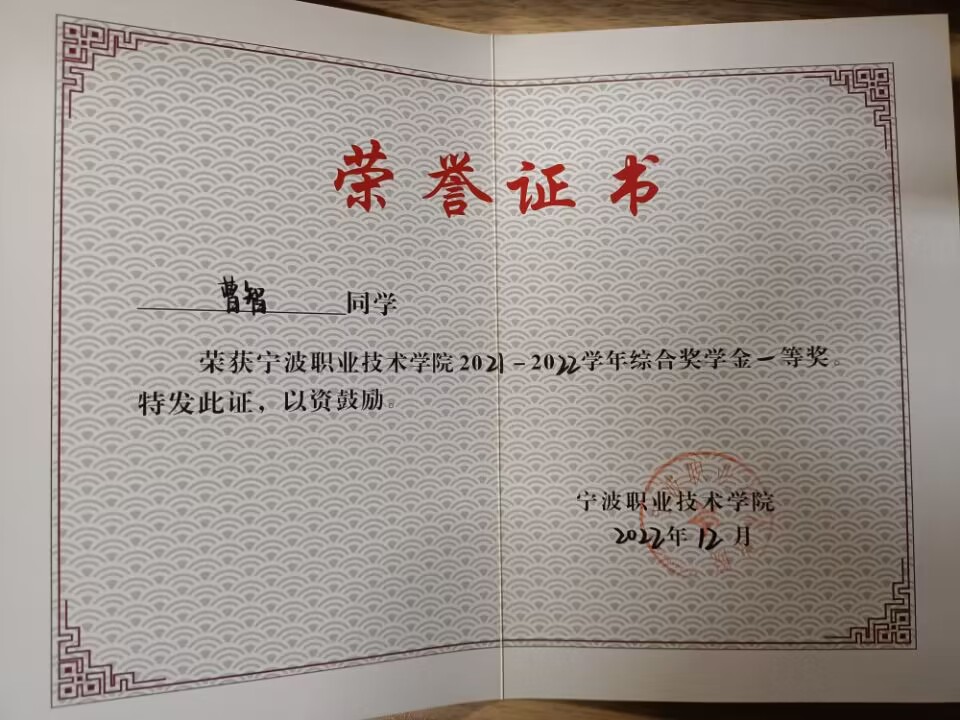 荣誉证书
曹智 同学
荣获宁波职业技术学院2021-2022学年综合奖学金一等奖。
特发此证，以资鼓励。
宁波职业技术学院
2022年12月